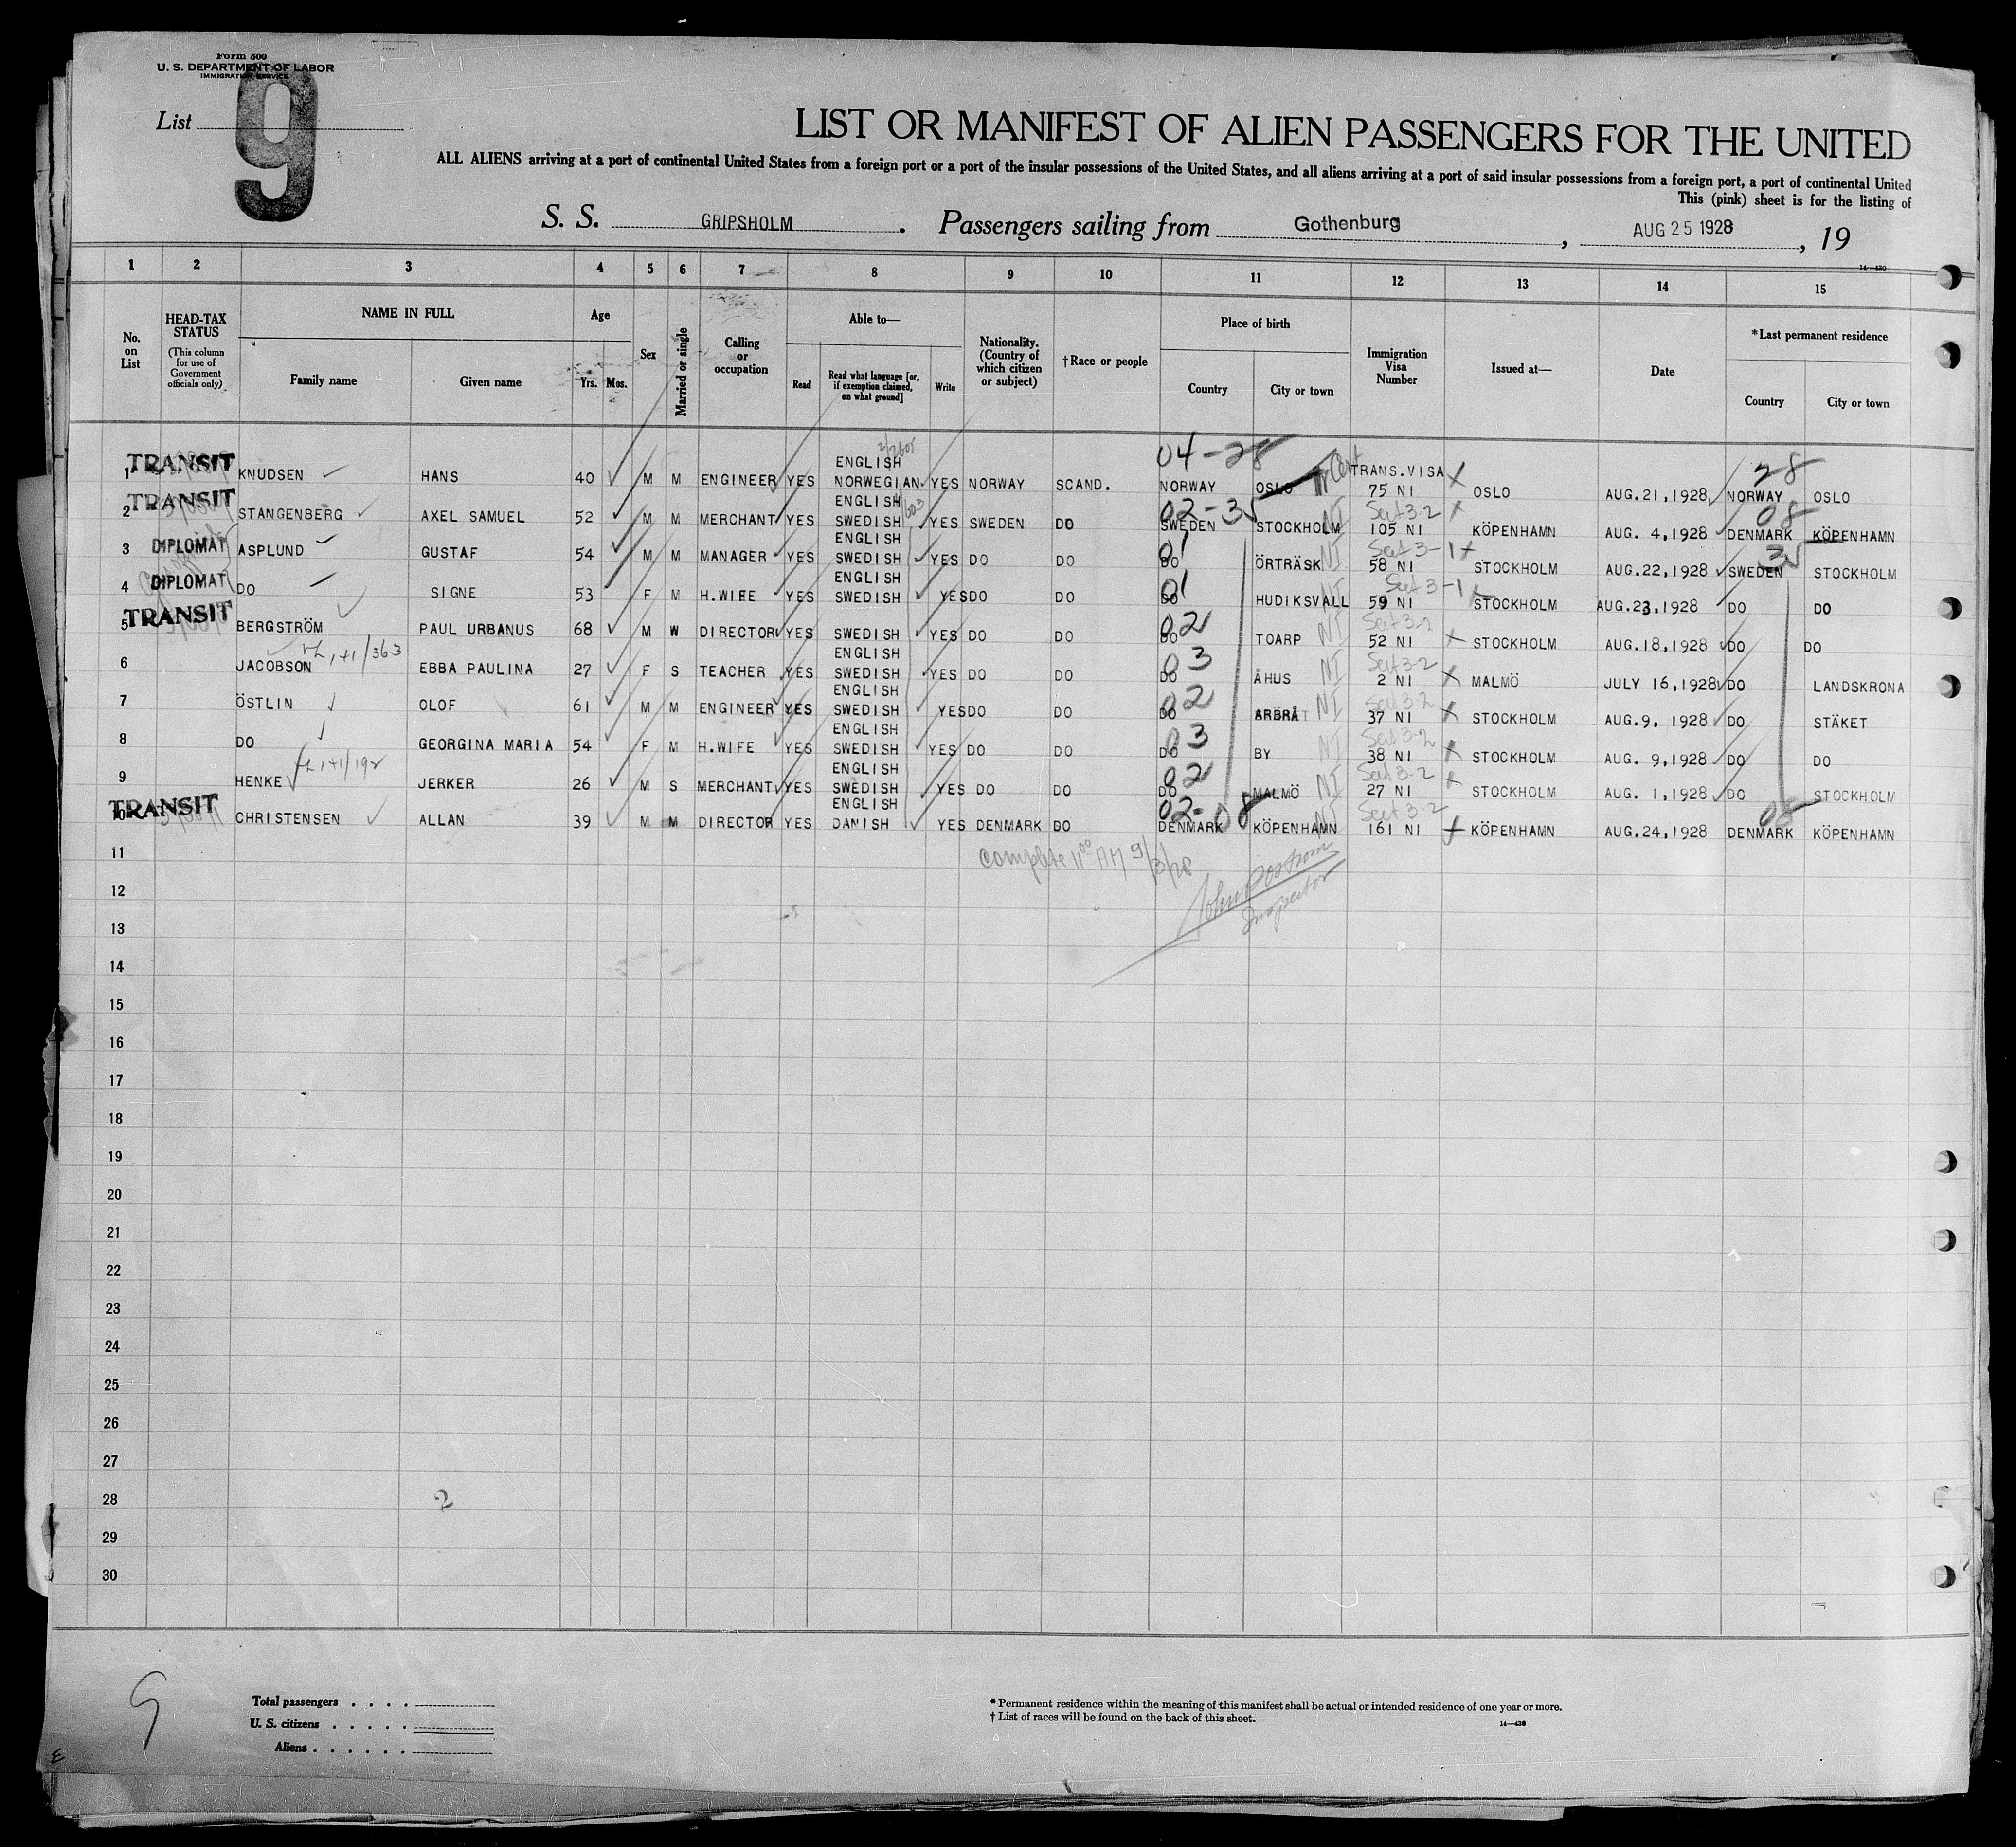 Form 500
U. S. DEPARTMENT OF LABOR
IMMIGRATION SERVICE
List 9
LIST OR MANIFEST OF ALIEN PASSENGERS FOR THE UNITED
ALL ALIENS arriving at a port of continental United States from a foreign port or a port of the insular possessions of the United States, and all aliens arriving at a port of said insular possessions from a foreign port, a port of continental United
This (pink) sheet is for the listing of
S. S. GRIPSHOLM. Passengers sailing from Gothenburg, AUG 25 1928, 19
14—430
1 2 3 4 5 6 7 8 9 10 11 12 13 14 15
No. on List
HEAD-TAX STATUS (This column for use of Government officials only)
NAME IN FULL
Family name
Given name
Age
Yrs. Mos.
Sex
Married or single
Calling or occupation
Able to—
Read
Read what language [or, if exemption claimed, on what ground]
Write
Nationality. (Country of which citizen or subject)
†Race or people
Place of birth
Country
City or town
Immigration Visa Number
Issued at—
Date
*Last permanent residence
Country
City or town
04-28 28
1 TRANSIT KNUDSEN HANS 40 M M ENGINEER YES ENGLISH NORWEGIAN YES NORWAY SCAND. NORWAY OSLO TRANS.VISA 75 NI OSLO AUG.21,1928 NORWAY OSLO
02-35 Sect 3-2 08
2 TRANSIT STANGENBERG AXEL SAMUEL 52 M M MERCHANT YES ENGLISH SWEDISH YES SWEDEN DO SWEDEN STOCKHOLM NI 105 NI KÖPENHAMN AUG. 4,1928 DENMARK KÖPENHAMN
01 Sect 3-1 35
3 DIPLOMAT ASPLUND GUSTAF 54 M M MANAGER YES ENGLISH SWEDISH YES DO DO DO ÖRTRÄSK NI 58 NI STOCKHOLM AUG.22,1928 SWEDEN STOCKHOLM
01 Sect 3-1
4 DIPLOMAT DO SIGNE 53 F M H.WIFE YES ENGLISH SWEDISH YES DO DO DO HUDIKSVALL 59 NI STOCKHOLM AUG.23,1928 DO DO
02 Sect 3-2
5 TRANSIT BERGSTRÖM PAUL URBANUS 68 M W DIRECTOR YES SWEDISH YES DO DO DO TOARP NI 52 NI STOCKHOLM AUG.18,1928 DO DO
03 Sect 3-2
6 JACOBSON EBBA PAULINA 27 F S TEACHER YES ENGLISH SWEDISH YES DO DO DO ÅHUS NI 2 NI MALMÖ JULY 16,1928 DO LANDSKRONA
02 Sect 3-2
7 ÖSTLIN OLOF 61 M M ENGINEER YES ENGLISH SWEDISH YES DO DO DO ARBRÅ NI 37 NI STOCKHOLM AUG.9, 1928 DO STÄKET
03 Sect 3-2
8 DO GEORGINA MARIA 54 F M H.WIFE YES ENGLISH SWEDISH YES DO DO DO BY NI 38 NI STOCKHOLM AUG. 9,1928 DO DO
02 Sect 3-2
9 HENKE JERKER 26 M S MERCHANT YES ENGLISH SWEDISH YES DO DO DO MALMÖ NI 27 NI STOCKHOLM AUG. 1,1928 DO STOCKHOLM
02-08 Sect 3-2 08
10 TRANSIT CHRISTENSEN ALLAN 39 M M DIRECTOR YES ENGLISH DANISH YES DENMARK DO DENMARK KÖPENHAMN NI 161 NI KÖPENHAMN AUG.24,1928 DENMARK KÖPENHAMN
11 complete 11 00 AM 9/3/28
12
Inspector
13
14
15
16
17
18
19
20
21
22
23
24
25
26
27
28 2
29
30
9
Total passengers
U. S. citizens
Aliens
* Permanent residence within the meaning of this manifest shall be actual or intended residence of one year or more.
† List of races will be found on the back of this sheet.
14—430